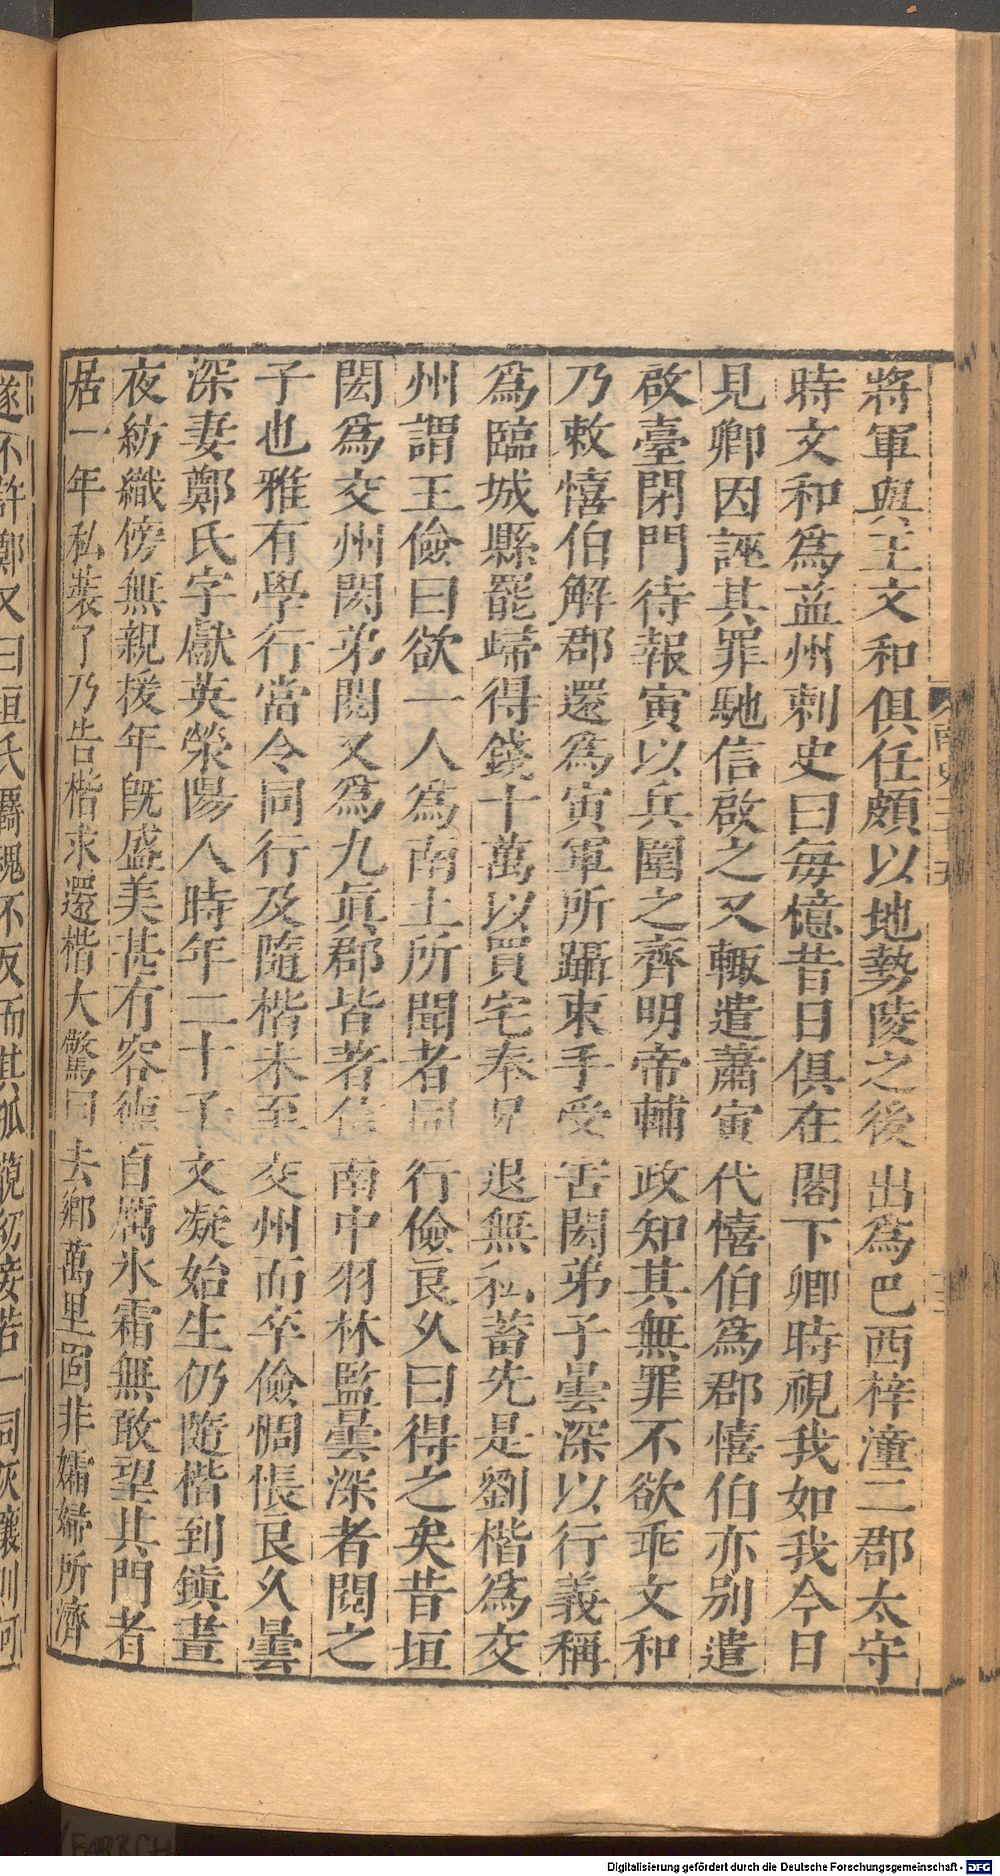 將軍與王文和俱任頗以地勢陵之後出爲巴西梓潼二郡太守
時文和爲益州刺史曰每憶昔日俱在閣下卿時視我如我今日
見卿因誣其罪馳信啟之又輙遣蕭寅代憘伯爲郡憘伯亦別遣
啟臺閉門待報寅以兵圍之齊明帝輔政知其無罪不欲乖文和
乃敕憘伯解郡還爲寅軍所躡束手受害閎弟子曇深以行義稱
爲臨城縣罷歸得錢十萬以買宅奉兄退無私蓄先是劉楷爲交
州謂王儉曰欲一人爲南土所聞者同行儉良久曰得之矣昔垣
閎爲交州閎弟閱又爲九眞郡皆著信南中羽林監曇深者閱之
子也雅有學行當令同行及隨楷未至交州而卒儉惆悵良久曇
深妻鄭氏字獻英滎陽人時年二十子文凝始生仍隨楷到鎭晝
夜紡織傍無親援年旣盛美甚有容德自厲氷霜無敢望其門者
居一年私裝了乃告楷求還楷大驚曰去鄉萬里固非孀婦所濟
遂不許鄭又曰垣氏羇魂不反而其孤藐幼妾若一同灰壤則何
南史二十五
Digitalisierung gefördert durch die Deutsche Forschungsgemeinschaft - DFG